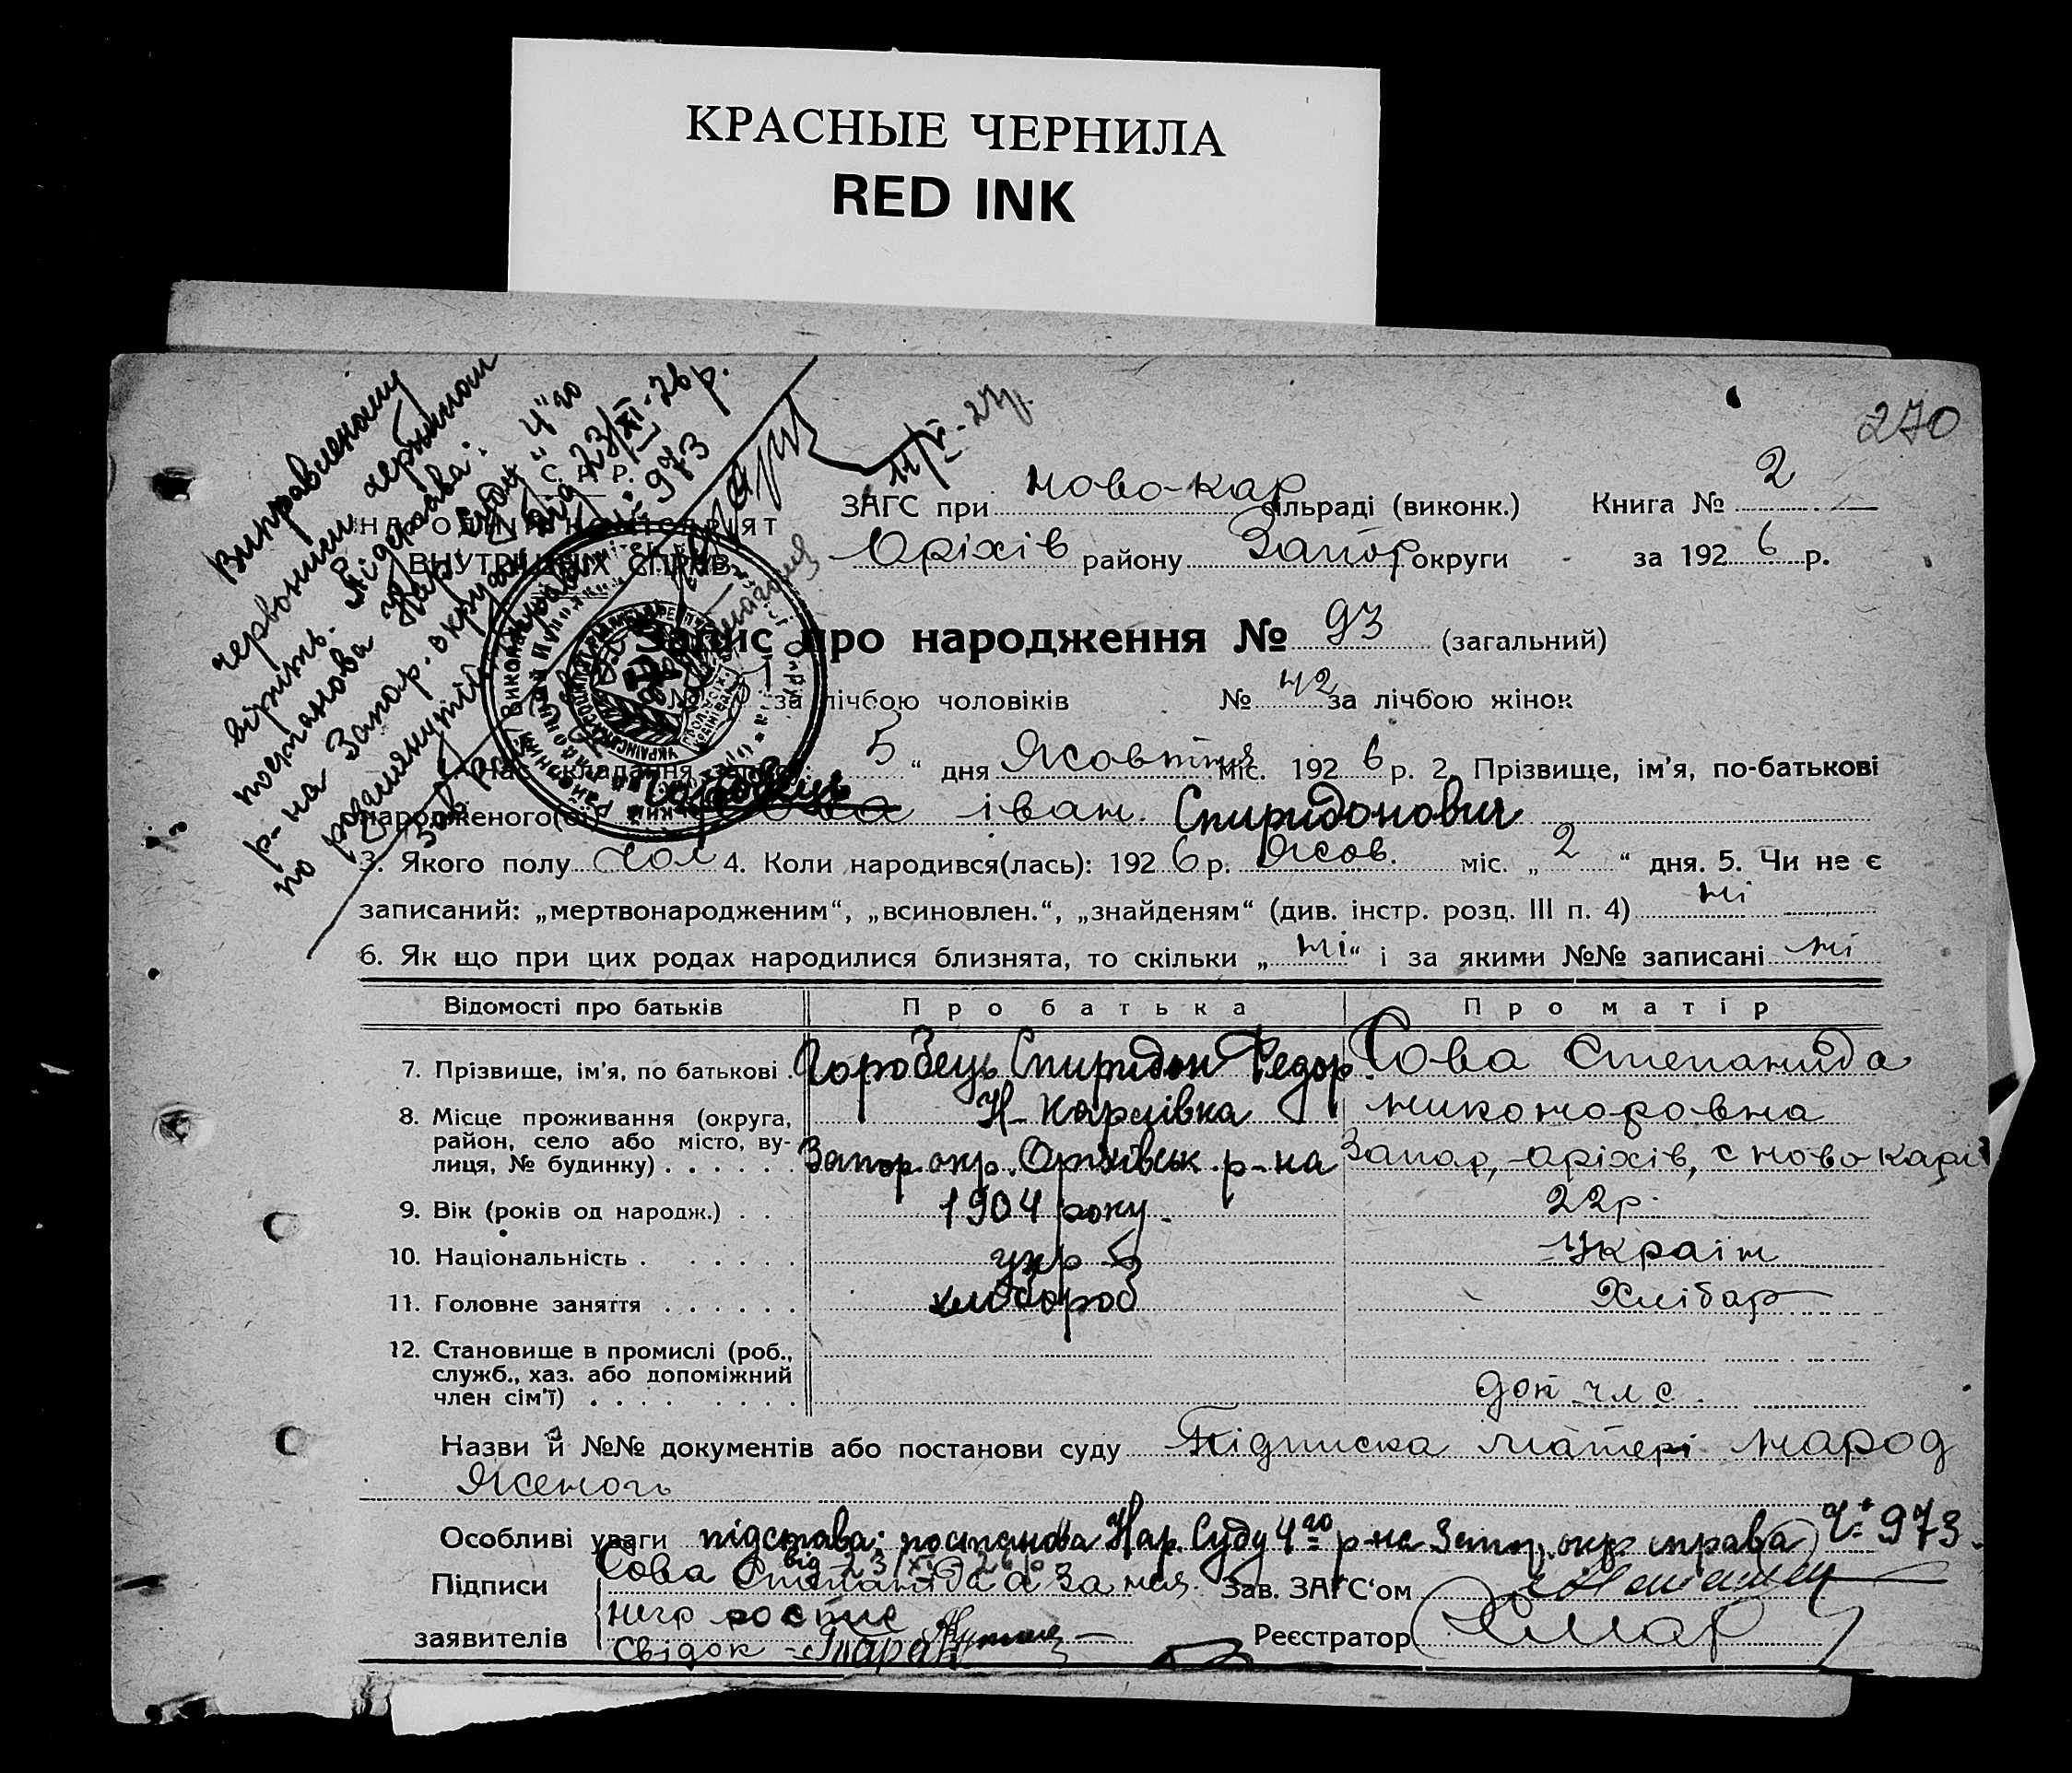 КРАСНЫЕ ЧЕРНИЛА
RED INK
270
Виправленому
червоним чернилом
вірить. Підстава:
постанова Нар. Суду "4"го
р-на Запор. округи від 23/XI-26 р.
по № 973
11/V-27р.
С. Р. Р.
НАРОДНИЙ КОМІСАРІЯТ
ВНУТРІШНІХ СПРАВ
ЗАГС при Ново-кар сільраді (виконк.) Книга № 2
Оріхів району Запор округи за 1926 р.
Запис про народження № 93 (загальний)
№ 51 за лічбою чоловіків № 42 за лічбою жінок
1. Час складання запису: 5 “ дня Жовтня міс. 1926 р. 2. Прізвище, ім’я, по-батькові
народженого(ої) Сова Горобець іван Спиридонович
3. Якого полу чол 4. Коли народився(лась): 1926 р. Жов. міс. „ 2 “ дня. 5. Чи не є
записаний: „мертвонародженим“, „всиновлен.“, „знайденям“ (див. інстр. розд. III п. 4) ні
6. Як що при цих родах народилися близнята, то скільки „ ні “ і за якими №№ записані ні
Відомості про батьків Про батька Про матір
7. Прізвище, ім’я, по батькові . Горобець Спиридон Федор. Сова Степанида
Никоноровна
8. Місце проживання (округа, район, село або місто, вулиця, № будинку) . . . . . . Н-Карлівка
Запор. окр. Оріхівськ. р-на Запор, Оріхів, с Ново карл
9. Вік (років од народж.) . . . 1904 року. 22р.
10. Національність . . . . . . укр Україн
11. Головне заняття . . . . . . хлібороб Хлібар
12. Становище в промислі (роб., служб., хаз. або допоміжний член сім’ї) . . . . . . . . доп чл с.
Назви й №№ документів або постанови суду Підписка матері народ
Женого
Особливі уваги підстава: постанова Нар. Суду 4го р-на Запор. окр справа Ч: 973.
від 23/XI 26 р
Підписи Сова Степанида а за нея Зав. ЗАГС‘ом
заявителів негр ростис
Свідок - Таран Реєстратор Хмар